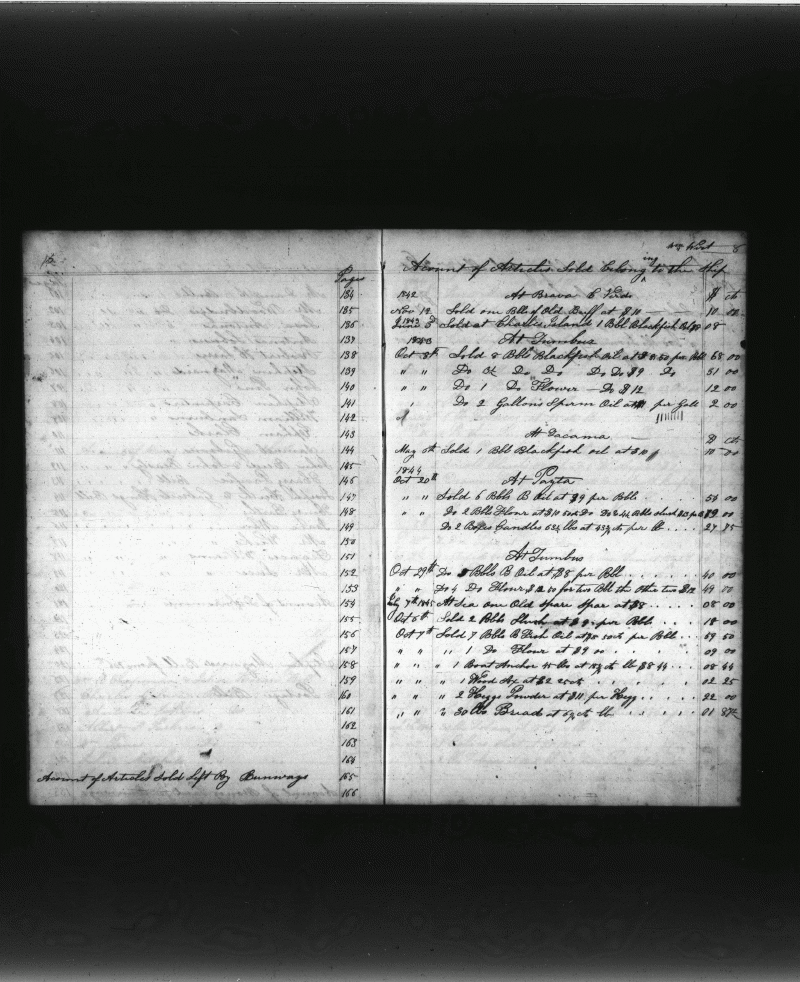 Pages
134
135
136
137
138
139
140
141
142
143
144
145
146
147
148
149
150
151
152
153
154
155
156
157
158
159
160
161
162
163
164
Acount of Articles Sold Left By Runways 165
166
8
Acount of Articles Sold belonging to the Ship
1842 At Brava C Verd $ cts
Nov 12 Sold one Bbl of Old Beef at $10 10 00
1843
June 3d Sold at Charles Island 1 Bbl Blackfish Oil 08
1843 At Tumbus
Oct 8th Sold 8 Bbls Blackfish Oil at $8.50 per Bbl 68 00
" " Do Do Do Do Do $9 Do 31 00
" " Do 1 Do Flower Do $12 12 00
" Do 2 Gallons Sperm Oil at $1 per Gall 2 00
At Tacama $ cts
May 8th Sold 1 Bbl Blackfish oil at $10 10 00
1844
Oct 20th At Payta
" " Sold 6 Bbls B Oil at $9 per Bbl 54 00
Do 2 Bbls Flour at $10
Do 2 Boxes Candles 63 lbs at cts per lb 27 85
At Tumbus
Oct 29th Do 5 Bbls B Oil at $8 per Bbl 40 00
" " Do 4 Do Flour for two Bbl the other two $12 49 00
July 7th 1845 At Sea one Old Spare Spar at $8 08 00
Oct 6th Sold 2 Bbls Slush at $9 per Bbl 18 00
Oct 7th Sold 7 Bbls B Fish Oil at $8 50cts per Bbl 59 50
" " " 1 Do Flour at $9 00 09 00
" " " 1 Boat Anchor 45 lbs at cts lb $8 44 08 44
" " " 1 Wood Ax at $2 25cts 02 25
" " " 2 Keggs Powder at $11 per Kegg 22 00
" " " 30 lbs Bread at 6¼ cts lb 01 87½